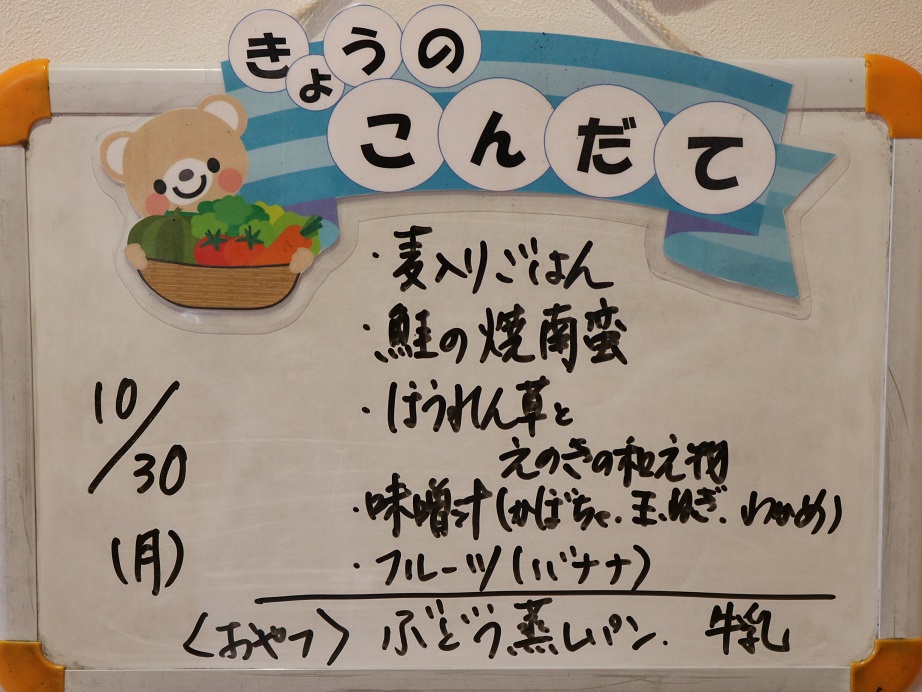 きょうの
こんだて
・麦入りごはん
・鮭の焼南蛮
・ほうれん草と
えのきの和え物
・味噌汁(かぼちゃ.玉ねぎ.わかめ)
・フルーツ(バナナ)
10/30
(月)
〈おやつ〉ぶどう蒸しパン. 牛乳